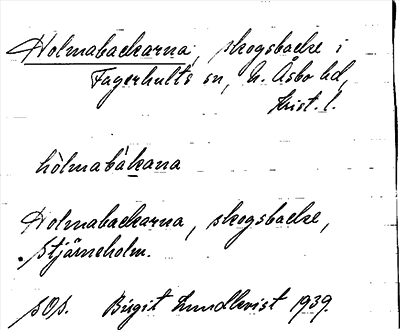 Holmabackarna, skogsbacke i
Fagerhults sn, N. Åsbo hd,
Krist. l.
hòlmabàkana
Holmabackarna, skogsbacke,
Stjärneholm.
sOs. Birgit Lundkvist 1939.